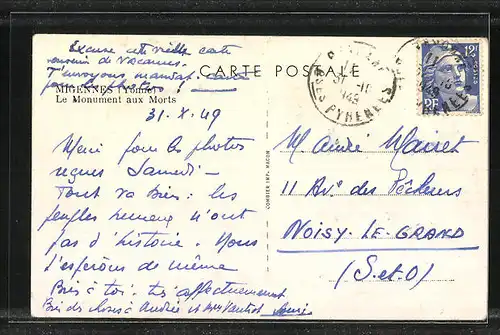 Excuse cette vieille carte
souvenir de vacances.
T'envoyons mandat
pour les photos!
CARTE POSTALE
MIGENNES (Yonne)
Le Monument aux Morts
31.X.49
Merci pour les photos
reçues Samedi-
Tout va Bien: les
peuples heureux n'ont
pas d'histoire. Nous
l'espérons de même
Bien à toi: très affectueusement
Bien des choses à Andrée et Mme
COMBIER IMP. MACON
PYRENEES
12F
RF
Monsieur André Mairet
11 Av. des Pêcheurs
NOISY-LE-GRAND
(S.et.O)